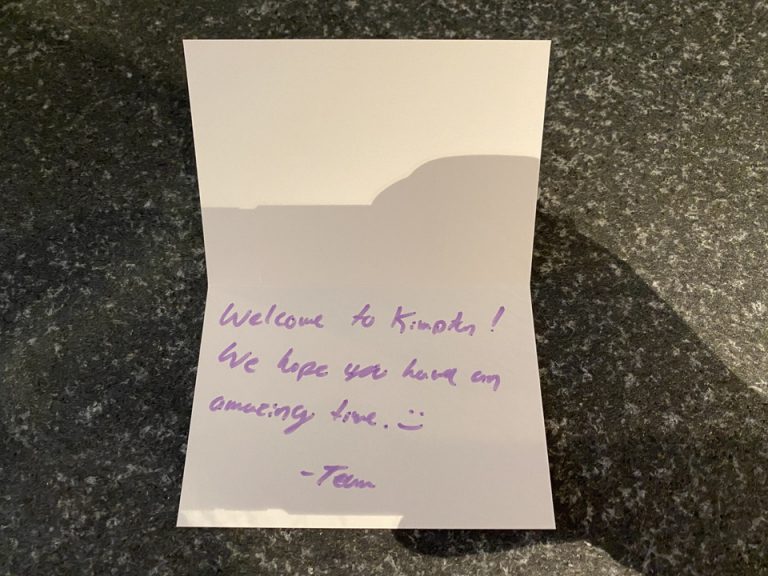 Welcome to Kimpton!
We hope you have an
amazing time. :)
-Team